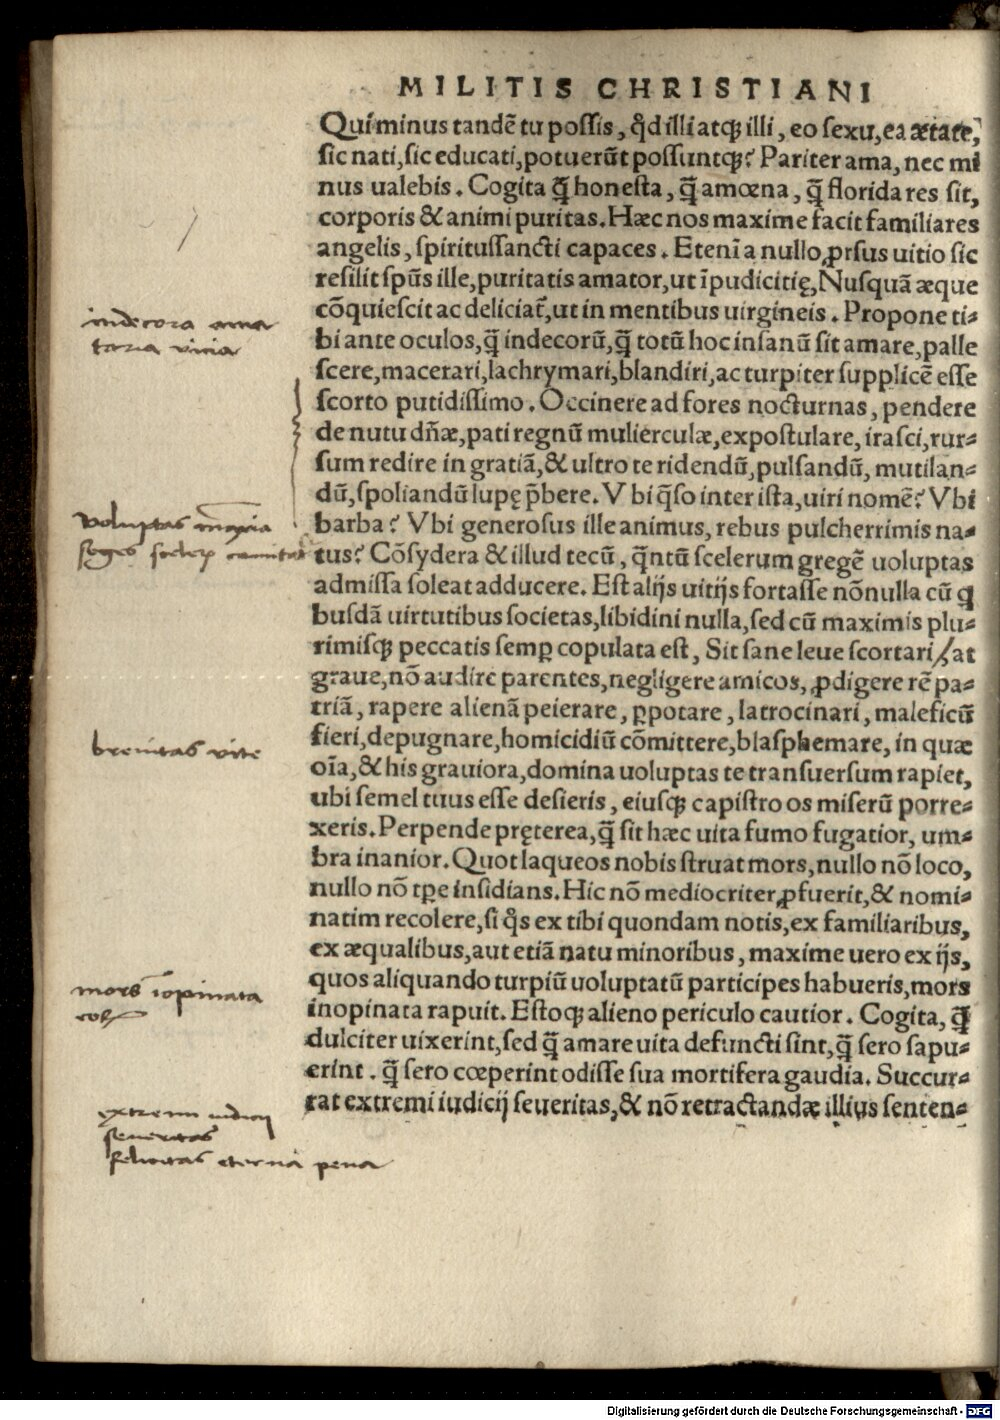 MILITIS CHRISTIANI
Qui minus tandē tu possis, qd̛ illi atqꝫ illi, eo sexu, ea ætate,
sic nati, sic educati, potuerūt possuntqꝫ? Pariter ama, nec mi
nus ualebis. Cogita q̄ honesta, q̄ amœna, q̄ florida res sit,
corporis & animi puritas. Hæc nos maxime facit familiares
angelis, spiritussancti capaces. Etenī a nullo ꝓrsus uitio sic
resilit spūs ille, puritatis amator, ut īpudicitię, Nusquā æque
cōquiescit ac deliciat̄, ut in mentibus uirgineis. Propone ti-
bi ante oculos, q̄ indecorū, q̄ totū hoc insanū sit amare, palle
scere, macerari, lachrymari, blandiri, ac turpiter supplicē esse
scorto putidissimo. Occinere ad fores nocturnas, pendere
de nutu dn̄æ, pati regnū mulierculæ, expostulare, irasci, rur-
sum redire in gratiā, & ultro te ridendū, pulsandū, mutilan-
dū, spoliandū lupę p̄bere. Vbi q̄so inter ista, uiri nomē? Vbi
barba? Vbi generosus ille animus, rebus pulcherrimis na-
tus? Cōsydera & illud tecū, q̄ntū scelerum gregē uoluptas
admissa soleat adducere. Est alijs uitijs fortasse nōnulla cū q
busdā uirtutibus societas, libidini nulla, sed cū maximis plu-
rimisqꝫ peccatis semꝑ copulata est, Sit sane leue scortari / at
graue, nō audire parentes, negligere amicos, ꝓdigere rē pa-
triā, rapere alienā peierare, ꝑpotare, latrocinari, maleficū
fieri, depugnare, homicidiū cōmittere, blasphemare, in quæ
oīa, & his grauiora, domina uoluptas te transuersum rapiet,
ubi semel tuus esse desieris, eiusqꝫ capistro os miserū porre-
xeris. Perpende pręterea, q̄ sit hæc uita fumo fugatior, um-
bra inanior. Quot laqueos nobis struat mors, nullo nō loco,
nullo nō tꝑe insidians. Hic nō mediocriter ꝓfuerit, & nomi-
natim recolere, si q̛s ex tibi quondam notis, ex familiaribus,
ex æqualibus, aut etiā natu minoribus, maxime uero ex ijs,
quos aliquando turpiū uoluptatū participes habueris, mors
inopinata rapuit. Estoqꝫ alieno periculo cautior. Cogita, q̄
dulciter uixerint, sed q̄ amare uita defuncti sint, q̄ sero sapu-
erint. q̄ sero cœperint odisse sua mortifera gaudia. Succur-
rat extremi iudicij seueritas, & nō retractandæ illius senten-
indecora ama
toria vicia
voluptas
breuitas vite
mors īopinata
extremi iudicij
seueritas
felicitas eterna pena
Digitalisierung gefördert durch die Deutsche Forschungsgemeinschaft - DFG